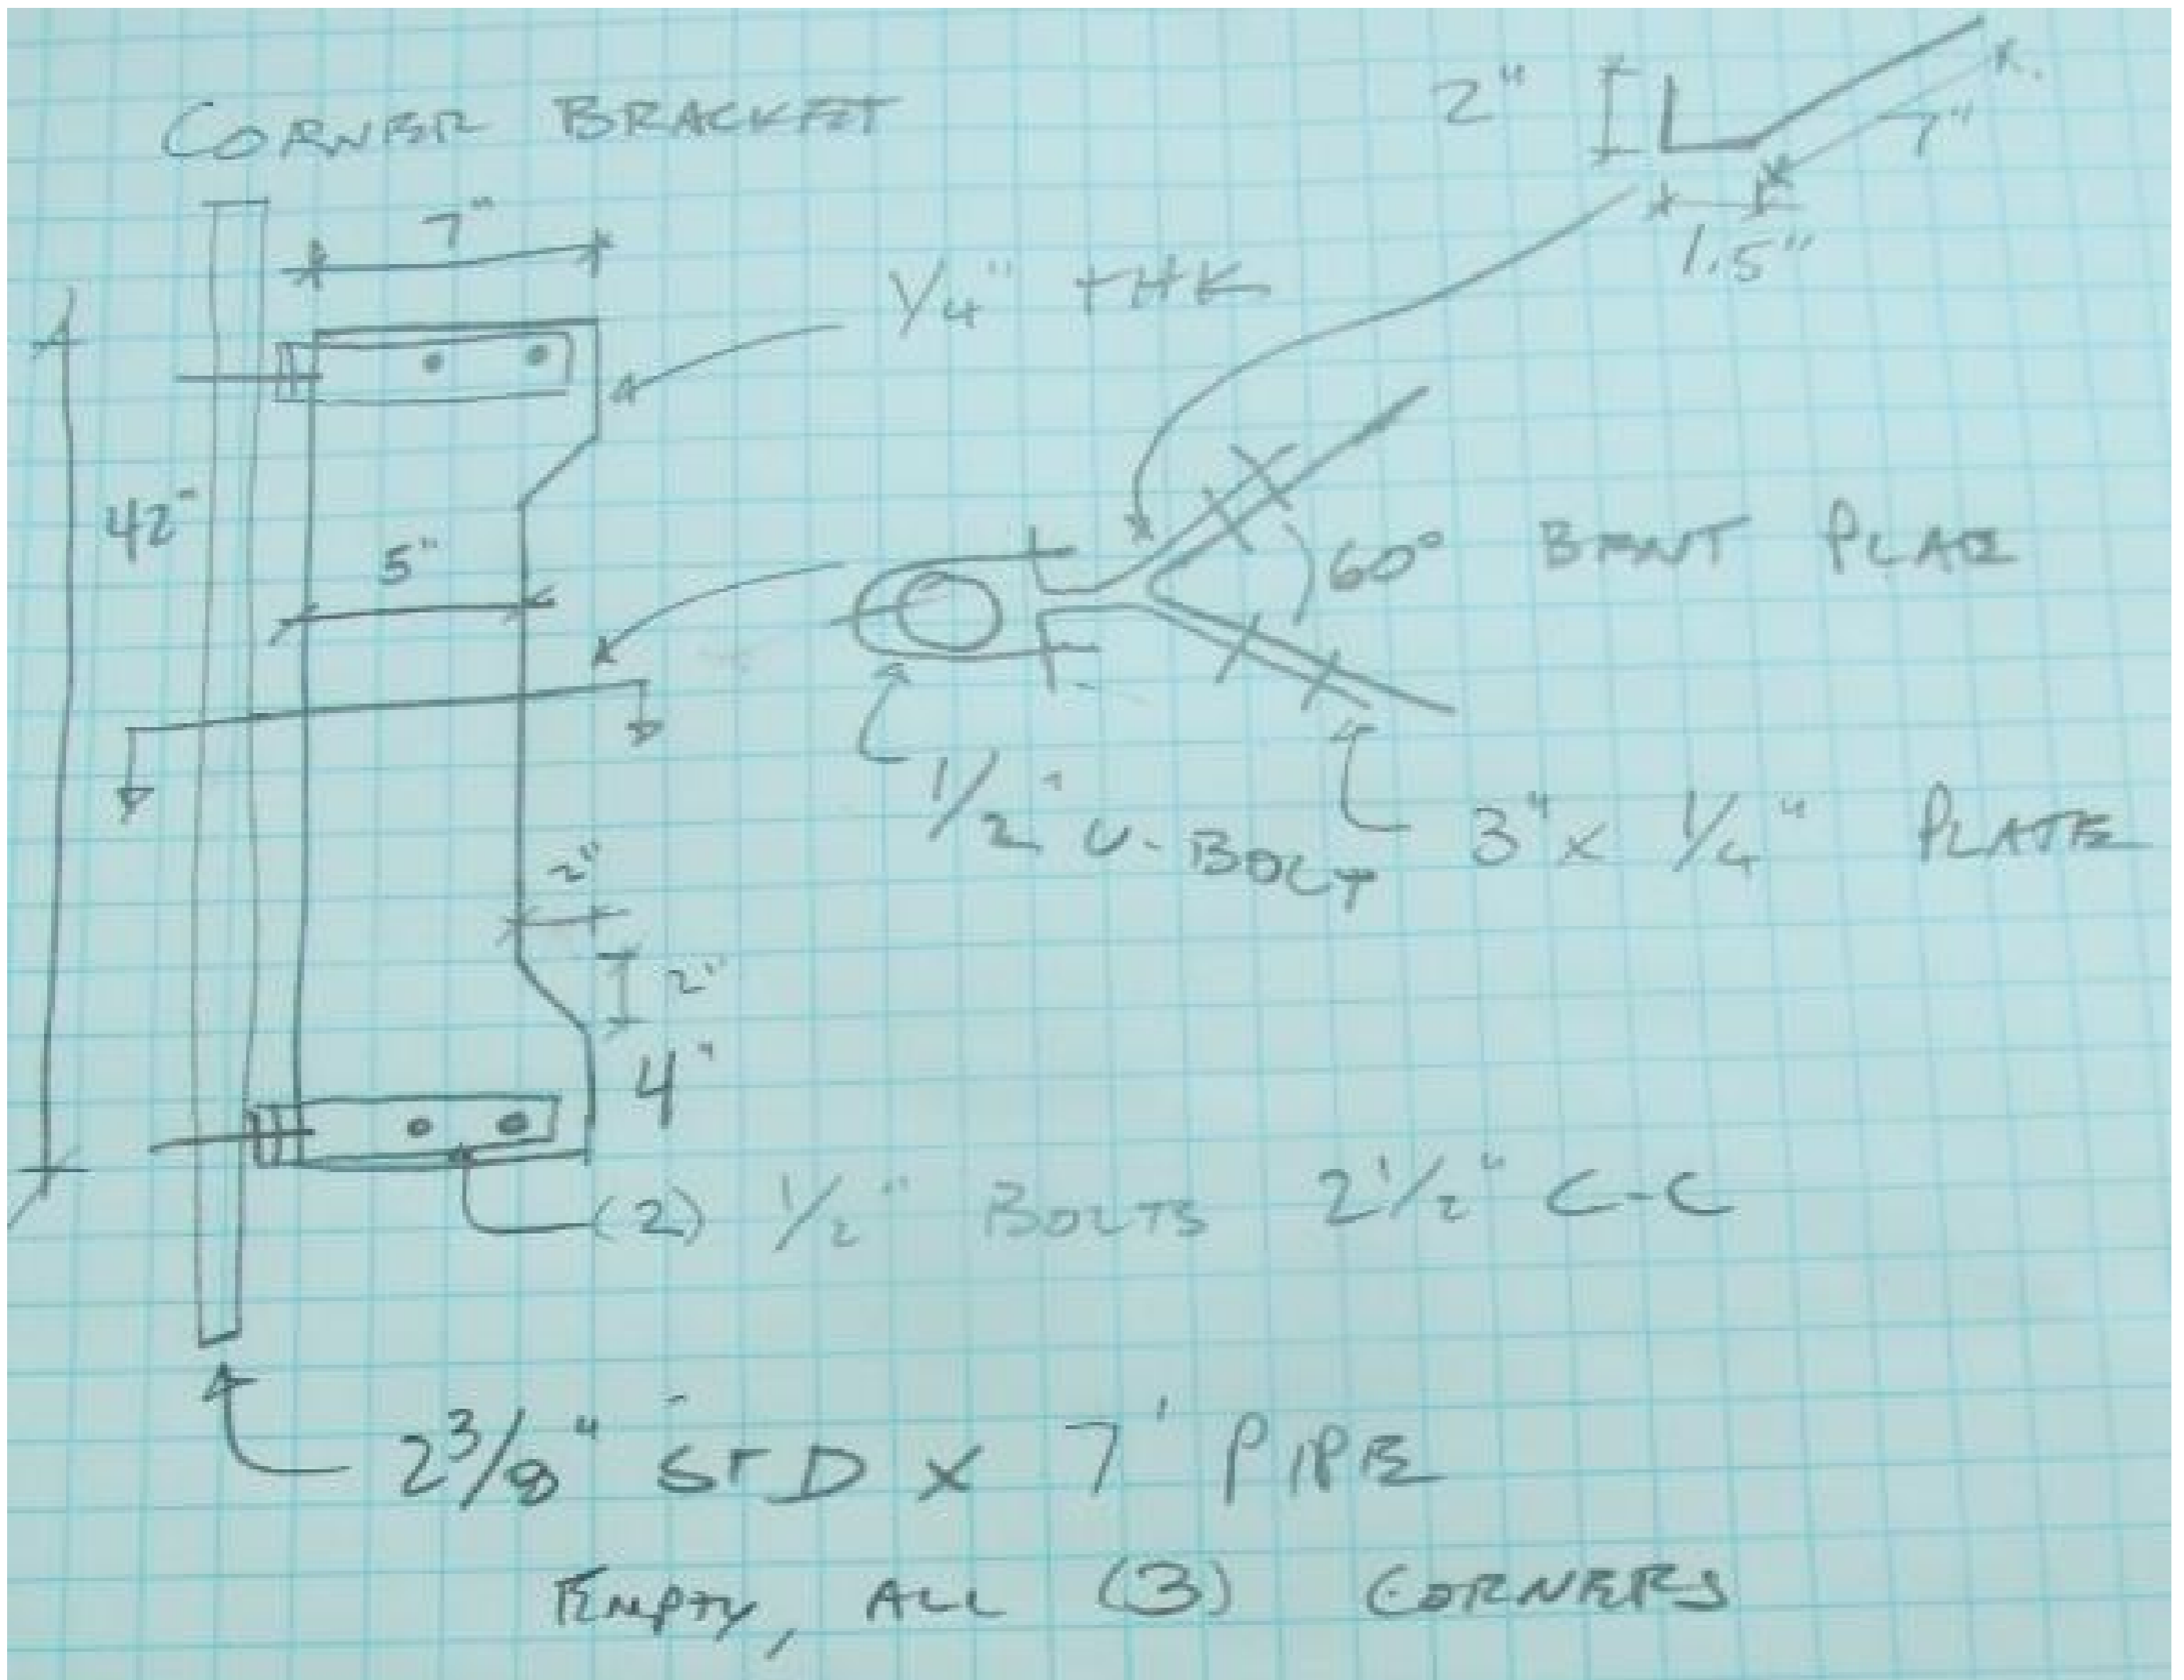 CORNER BRACKET
2"
7"
1.5"
7"
1/4" THK
42"
5"
60° BENT PLATE
1/2" U-BOLT
3" x 1/4" PLATE
2"
2"
4"
(2) 1/2" BOLTS 2 1/2" C-C
2 3/8" STD x 7' PIPE
EMPTY, ALL (3) CORNERS